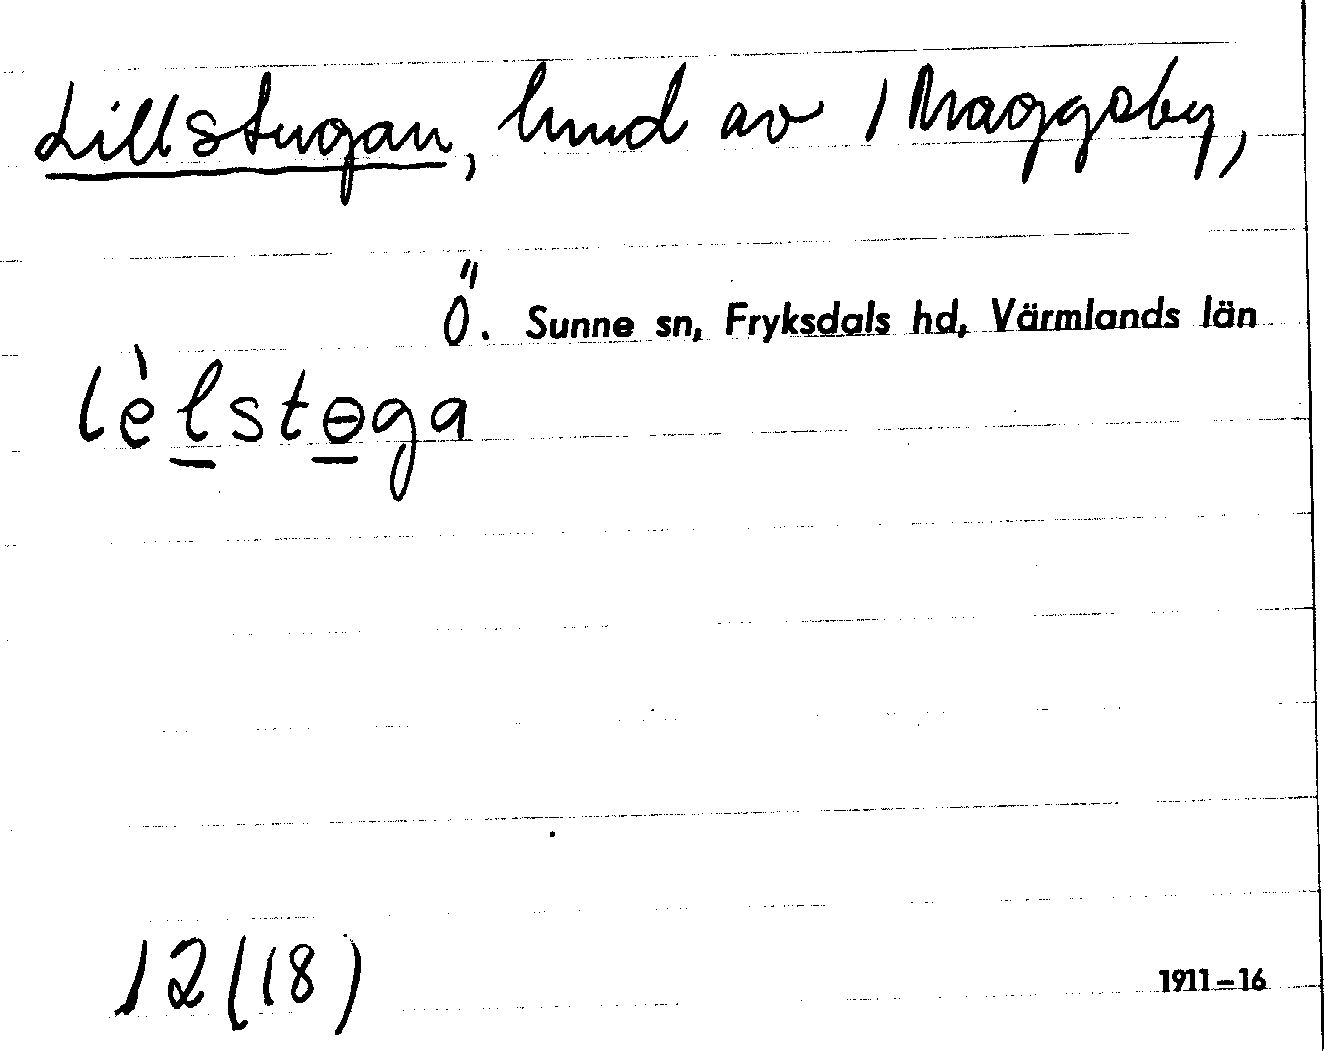 Lillstugan, lmd av 1 Maggsby,
Ö. Sunne sn, Fryksdals hd, Värmlands län
lèlstɵga
12(18)
1911–16